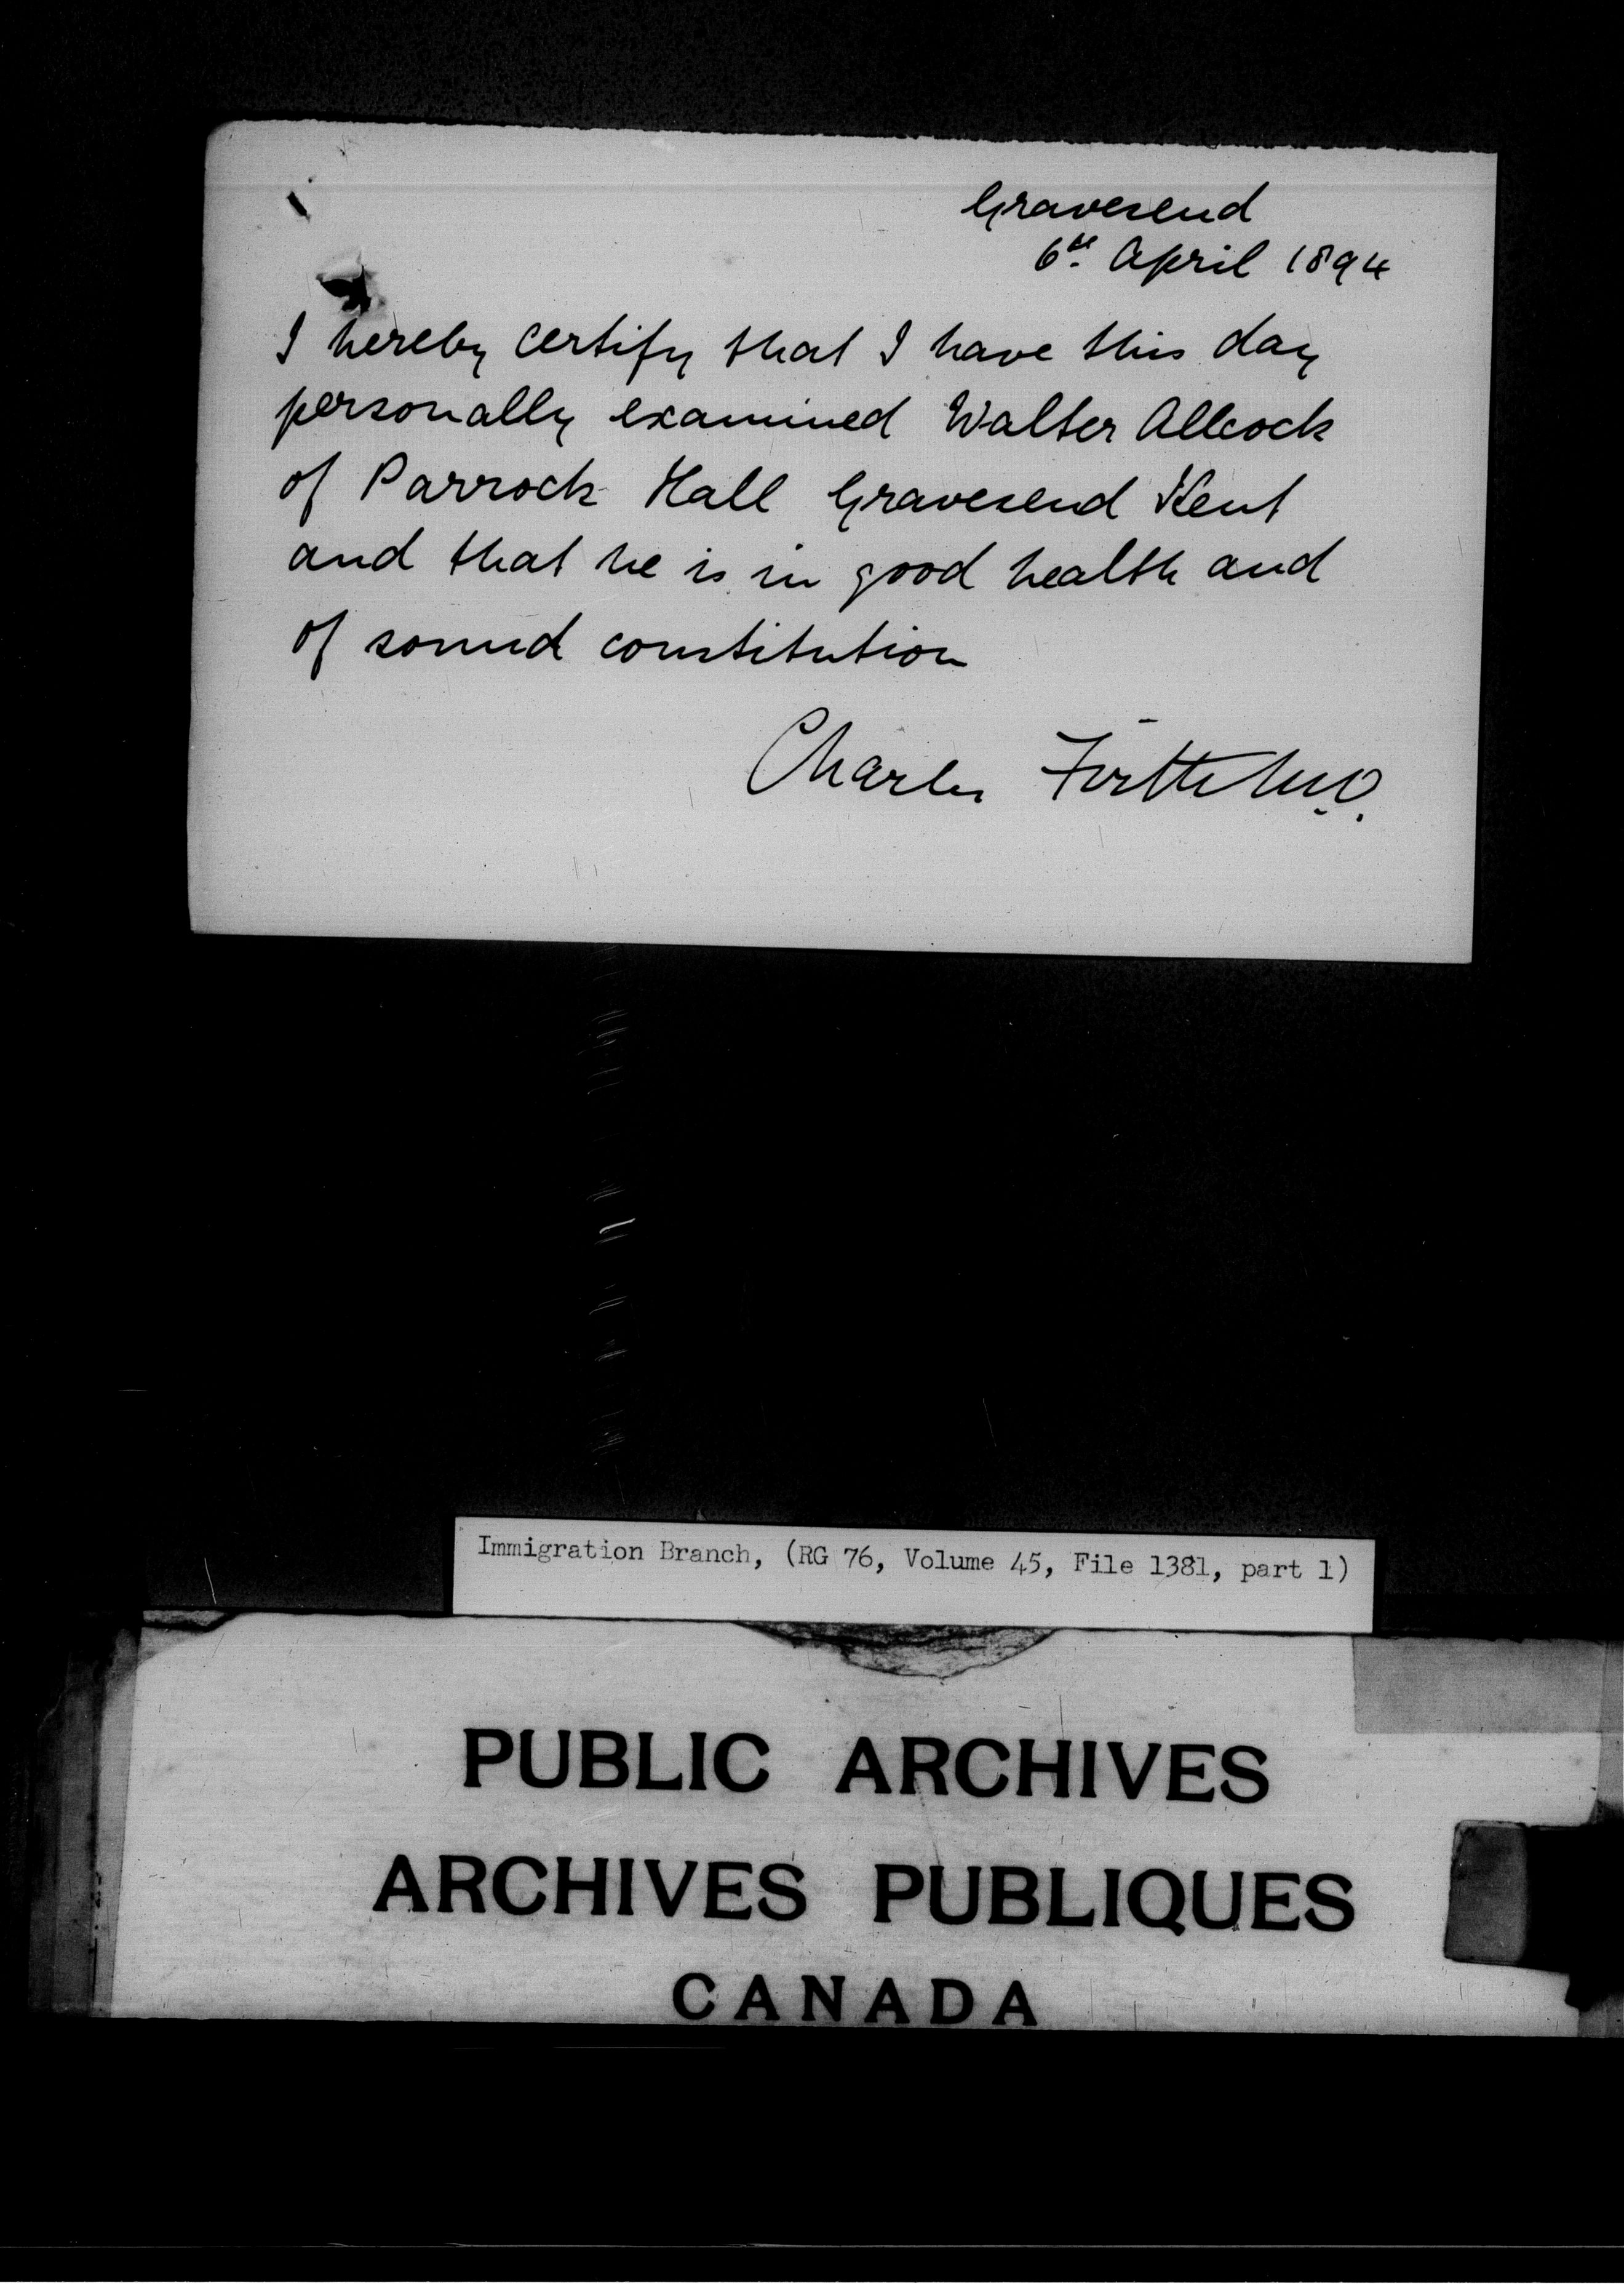 Gravesend
6th April 1894
I hereby certify that I have this day
personally examined Walter Allcock
of Parrock Hall Gravesend Kent
and that he is in good health and
of sound constitution
Charles Firth M.D.
Immigration Branch, (RG 76, Volume 45, File 1381, part 1)
PUBLIC ARCHIVES
ARCHIVES PUBLIQUES
CANADA